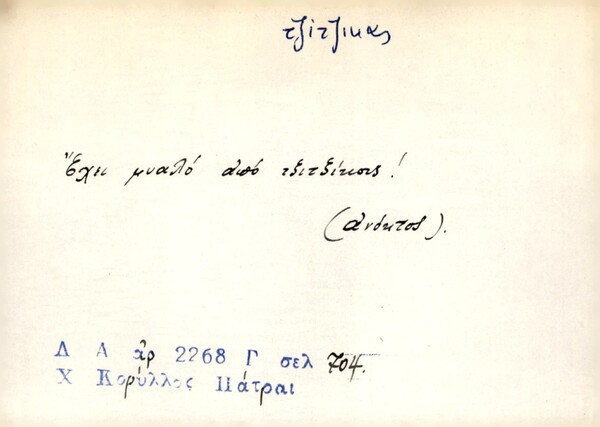 τζίτζικας
Ἔχει μυαλό ἀπό τζιτζίκους!
(ἀνόητος).
Λ Α ἀρ 2268 Γ σελ 704.
Χ Κορύλλος Πάτραι